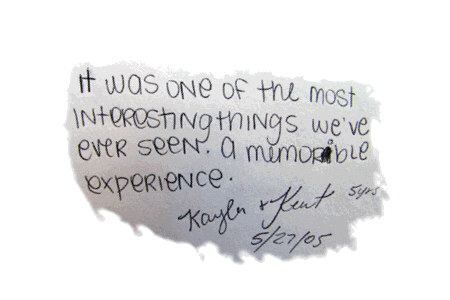 It was one of the most
interesting things we've
ever seen. a memorible
experience.
Kayla & Kent 5yrs
5/27/05